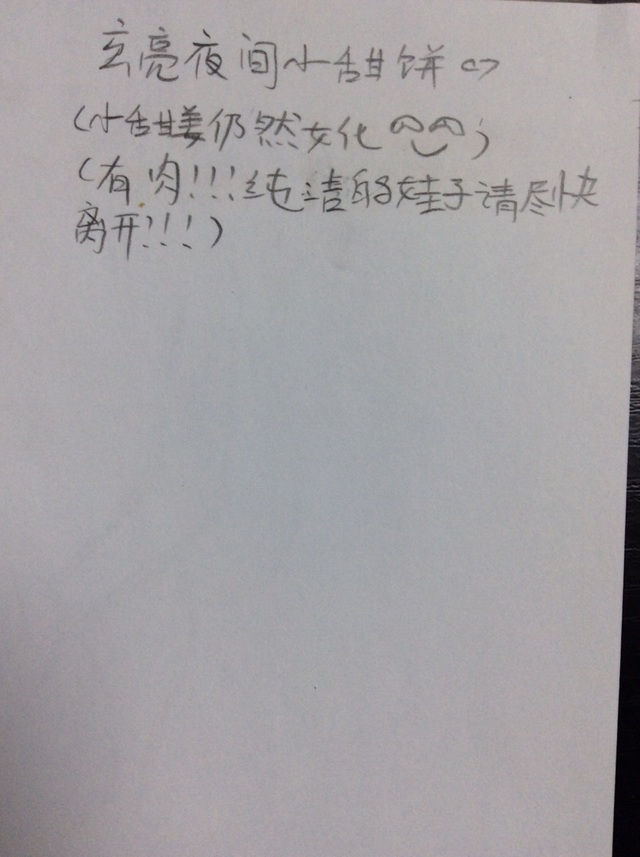 玄亮夜间小甜饼<>
(小甜姜仍然女化
(有肉!!!纯洁的娃子请尽快
离开!!!)